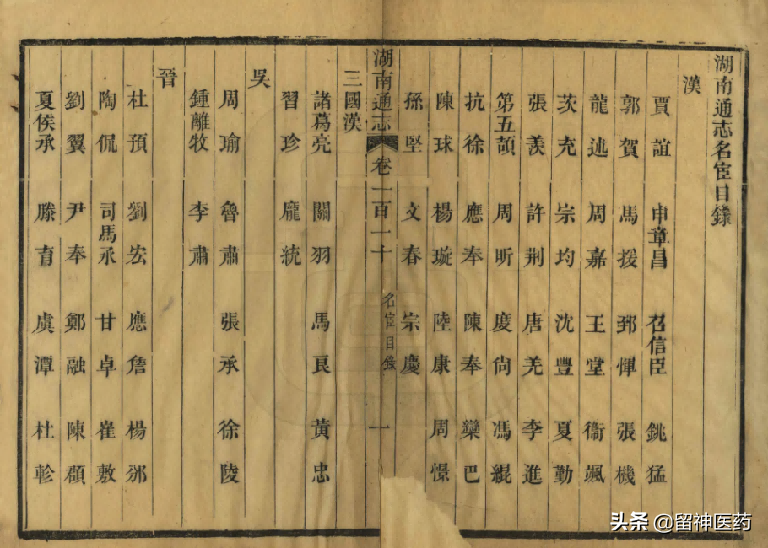 湖南通志名宦目錄
漢
賈誼 申章昌 召信臣 銚猛
郭賀 馬援 郅惲 張機
龍述 周嘉 王堂 衞颯
茨充 宗均 沈豐 夏勤
張羨 許荆 唐羌 李進
第五頡 周昕 慶尙 馮緄
抗徐 應奉 陳奉 欒巴
陳球 楊璇 陸康 周憬
孫堅 文春 宗慶
湖南通志 卷一百一十 名宦目錄 一
三國漢
諸葛亮 關羽 馬良 黃忠
習珍 龐統
吳
周瑜 魯肅 張承 徐陵
鍾離牧 李肅
晉
杜預 劉宏 應詹 楊邠
陶侃 司馬承 甘卓 崔敷
劉翼 尹奉 鄭融 陳頵
夏侯承 滕育 虞潭 杜軫
头条 @留神医药